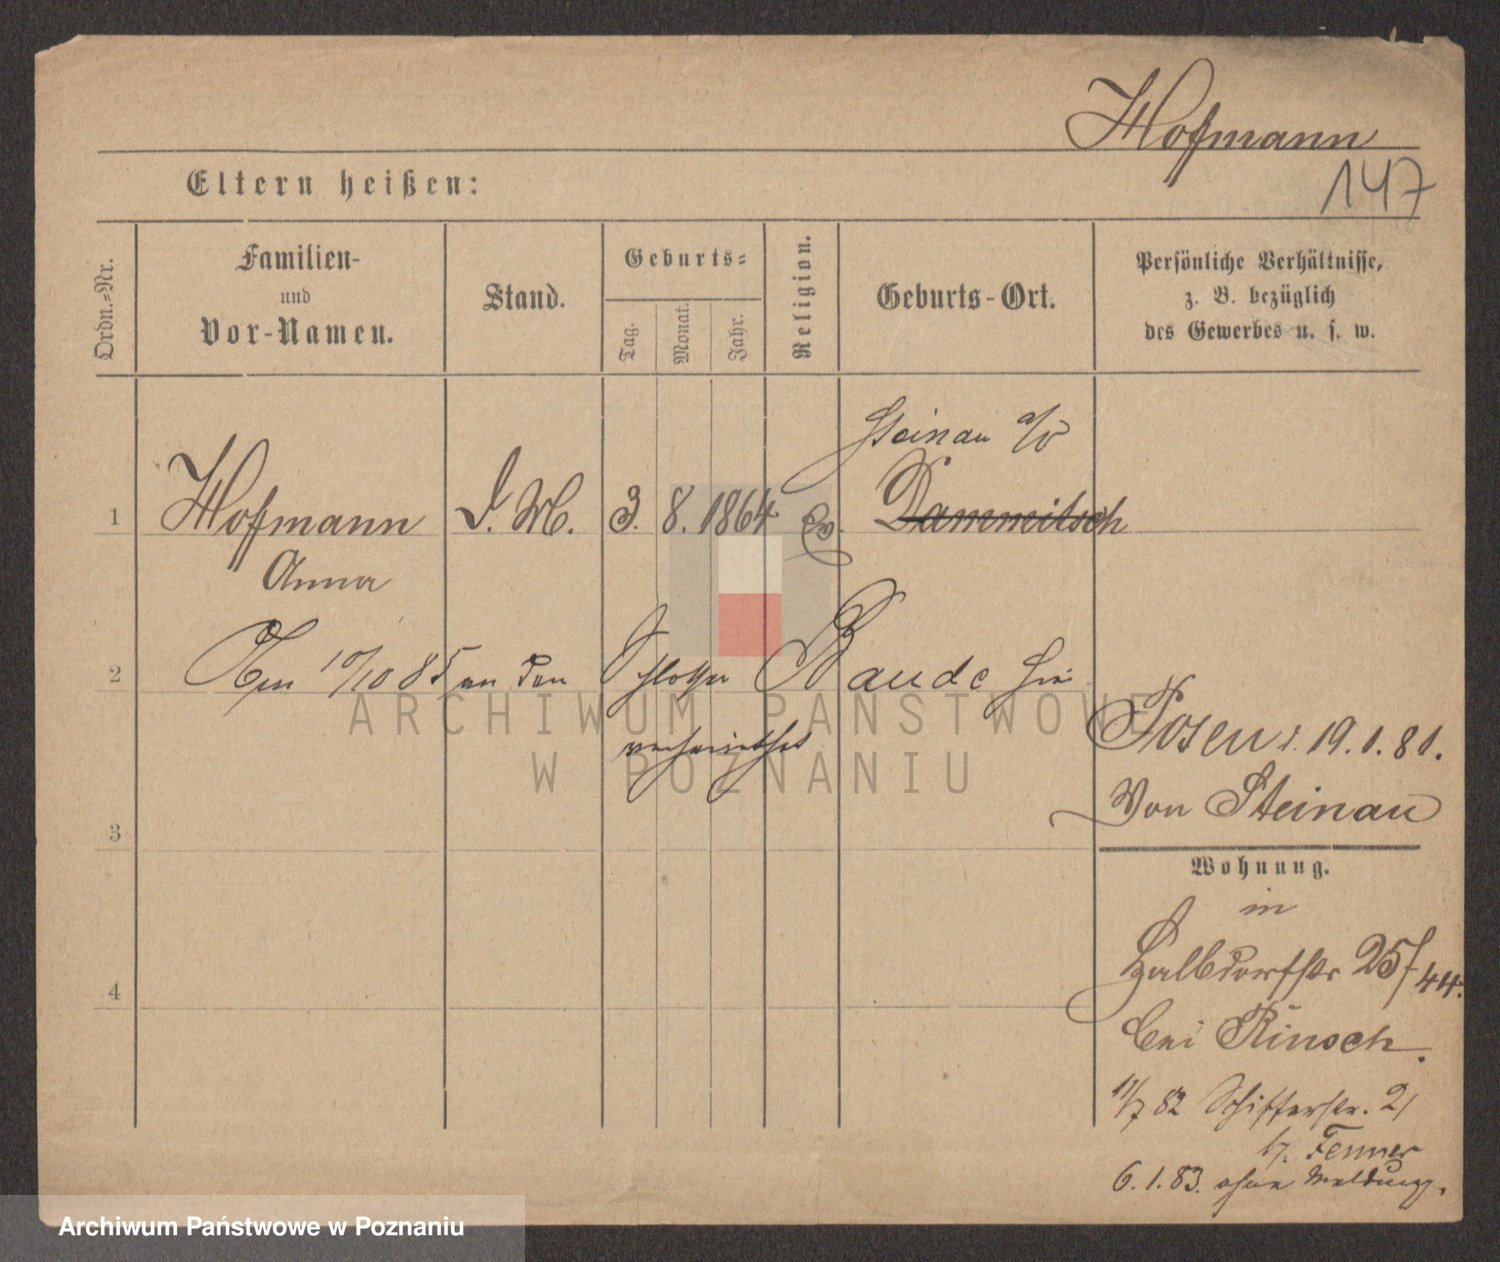 Hofmann
147
Eltern heißen:
Ordn.-Nr.
Familien-
und
Vor-Namen.
Stand.
Geburts-
Tag.
Monat.
Jahr.
Religion.
Geburts-Ort.
Persönliche Verhältnisse,
z. B. bezüglich
des Gewerbes u. s. w.
Steinau a/O
1 Hofmann D. M. 3. 8. 1864 Ev. Dammitsch
Anna
2 Am 10/10 85 an den Schlosser Baude hier
verheirathet
Posen d. 19.1.81.
Von Steinau
3
Wohnung.
in
Halbdorfstr 25/44.
4
bei Rinsch.
11/7 82 Schifferstr. 21
b. Fenner
6.1.83. ohne Meldung.
ARCHIWUM PAŃSTWOWE
W POZNANIU
Archiwum Państwowe w Poznaniu